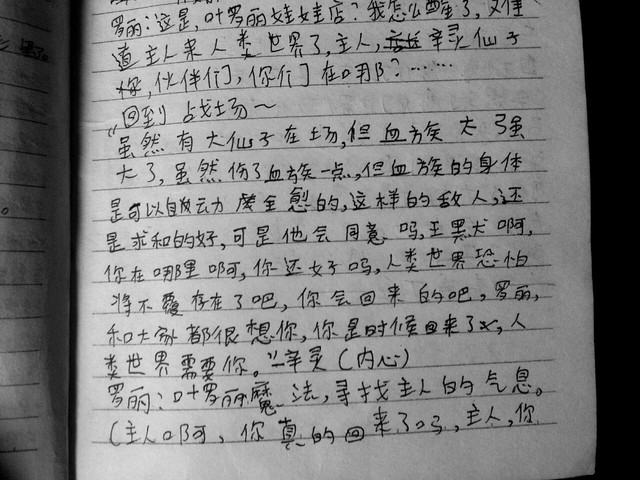 罗丽:这是,叶罗丽娃娃店?我怎么醒了,又僅
道主人来人类世界了,主人,辛灵仙子
你,伙伴们,你们在哪?……
“回到战场~
虽然有大仙子在场,但血族太强
大了,虽然伤了血族一点,但血族的身体
是可以自发动力痊愈的,这样的敌人,还
是求和的好,可是他会同意吗,王黑犬啊,
你在哪里啊,你还好吗,人类世界恐怕
将不覆存在了吧,你会回来的吧,罗丽,
和大家都很想你,你是时候回来了,人
类世界需要你。”—辛灵(内心)
罗丽:叶罗丽魔法,寻找主人的气息。
(主人啊,你真的回来了吗,主人,你